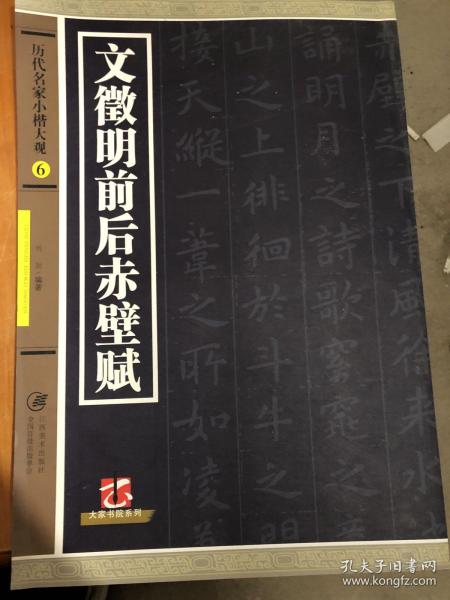 历代名家小楷大观
6
编著
江西美术出版社
全国百佳出版单位
文徵明前后赤壁赋
大家书院系列
赤壁之下清风徐来水
誦明月之詩歌窈窕之章
山之上徘徊於斗牛之間
接天縱一葦之所如凌萬
孔夫子旧书网
www.kongfz.com